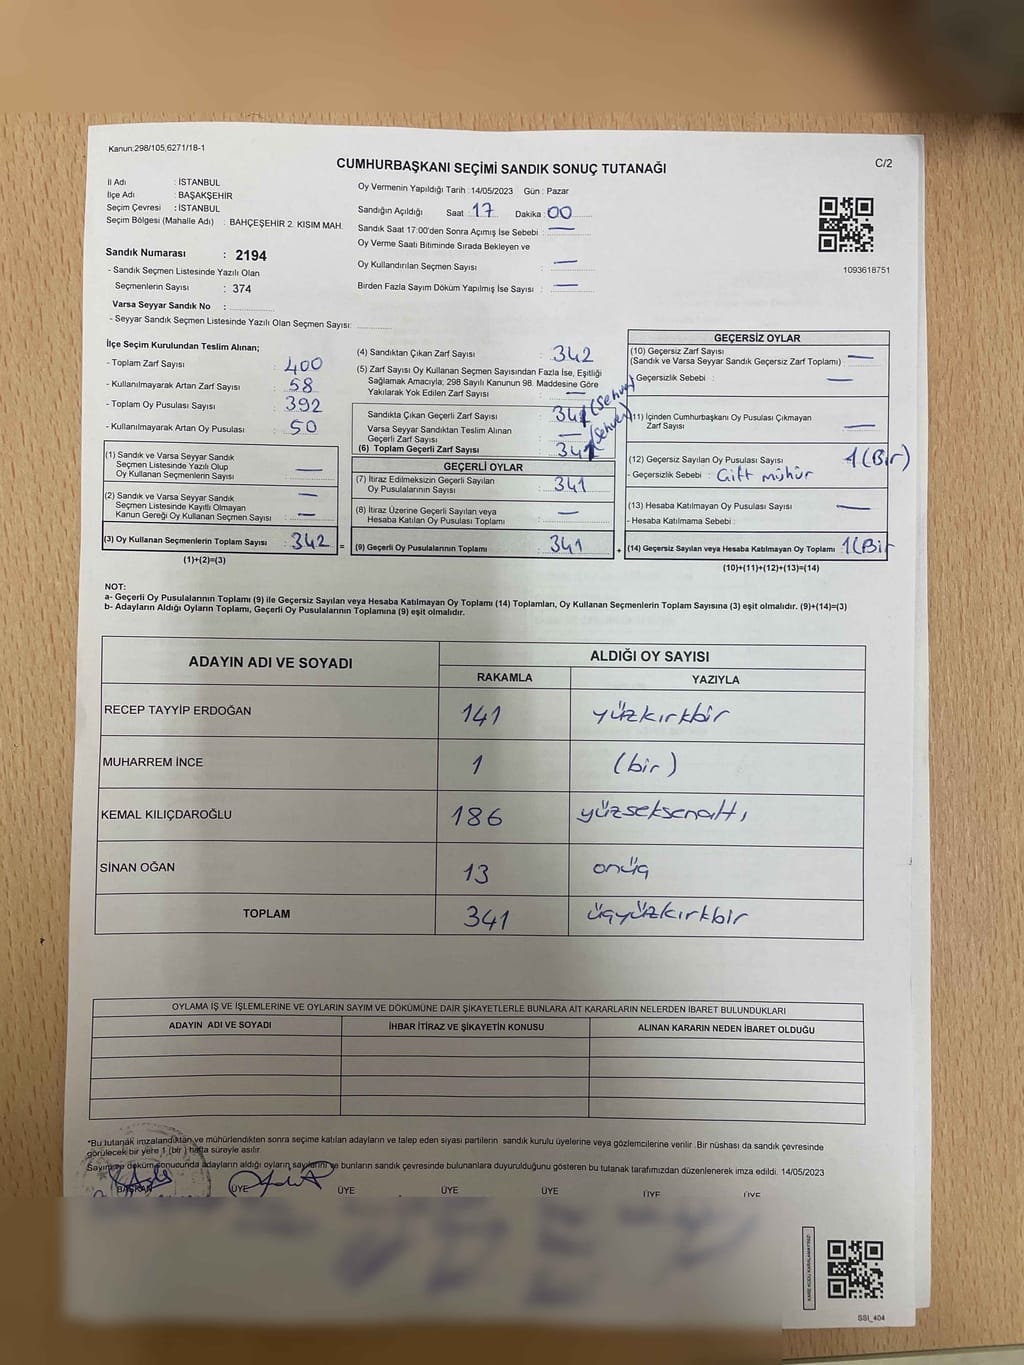 Kanun,298/105,6271/18-1
CUMHURBAŞKANI SEÇİMİ SANDIK SONUÇ TUTANAĞI
C/2
İl Adı : İSTANBUL
İlçe Adı : BAŞAKŞEHİR
Seçim Çevresi : İSTANBUL
Seçim Bölgesi (Mahalle Adı) : BAHÇEŞEHİR 2. KISIM MAH.
Sandık Numarası : 2194
- Sandık Seçmen Listesinde Yazılı Olan
Seçmenlerin Sayısı : 374
Varsa Seyyar Sandık No :
- Seyyar Sandık Seçmen Listesinde Yazılı Olan Seçmen Sayısı:
Oy Vermenin Yapıldığı Tarih :14/05/2023 Gün : Pazar
Sandığın Açıldığı Saat 17 Dakika : 00
Sandık Saat 17:00'den Sonra Açımış İse Sebebi : —
Oy Verme Saati Bitiminde Sırada Bekleyen ve
Oy Kullandırılan Seçmen Sayısı : —
Birden Fazla Sayım Döküm Yapılmış İse Sayısı : —
1093618751
İlçe Seçim Kurulundan Teslim Alınan;
- Toplam Zarf Sayısı : 400
- Kullanılmayarak Artan Zarf Sayısı : 58
- Toplam Oy Pusulası Sayısı : 392
- Kullanılmayarak Artan Oy Pusulası : 50
(1) Sandık ve Varsa Seyyar Sandık
Seçmen Listesinde Yazılı Olup
Oy Kullanan Seçmenlerin Sayısı : —
(2) Sandık ve Varsa Seyyar Sandık
Seçmen Listesinde Kayıtlı Olmayan
Kanun Gereği Oy Kullanan Seçmen Sayısı : —
(3) Oy Kullanan Seçmenlerin Toplam Sayısı : 342
(1)+(2)=(3)
=
(4) Sandıktan Çıkan Zarf Sayısı : 342
(5) Zarf Sayısı Oy Kullanan Seçmen Sayısından Fazla İse, Eşitliği
Sağlamak Amacıyla; 298 Sayılı Kanunun 98. Maddesine Göre
Yakılarak Yok Edilen Zarf Sayısı : —
Sandıkta Çıkan Geçerli Zarf Sayısı : 341 (Sehven)
Varsa Seyyar Sandıktan Teslim Alınan
Geçerli Zarf Sayısı : —
(6) Toplam Geçerli Zarf Sayısı : 341 (Sehven)
GEÇERLİ OYLAR
(7) İtiraz Edilmeksizin Geçerli Sayılan
Oy Pusulalarının Sayısı : 341
(8) İtiraz Üzerine Geçerli Sayılan veya
Hesaba Katılan Oy Pusulası Toplamı : —
(9) Geçerli Oy Pusulalarının Toplamı : 341
+
GEÇERSİZ OYLAR
(10) Geçersiz Zarf Sayısı : —
(Sandık ve Varsa Seyyar Sandık Geçersiz Zarf Toplamı)
- Geçersizlik Sebebi : —
(11) İçinden Cumhurbaşkanı Oy Pusulası Çıkmayan
Zarf Sayısı : —
(12) Geçersiz Sayılan Oy Pusulası Sayısı : 1 (Bir)
- Geçersizlik Sebebi : Çift mühür
(13) Hesaba Katılmayan Oy Pusulası Sayısı : —
- Hesaba Katılmama Sebebi :
(14) Geçersiz Sayılan veya Hesaba Katılmayan Oy Toplamı : 1 (Bir
(10)+(11)+(12)+(13)=(14)
NOT:
a- Geçerli Oy Pusulalarının Toplamı (9) ile Geçersiz Sayılan veya Hesaba Katılmayan Oy Toplamı (14) Toplamları, Oy Kullanan Seçmenlerin Toplam Sayısına (3) eşit olmalıdır. (9)+(14)=(3)
b- Adayların Aldığı Oyların Toplamı, Geçerli Oy Pusulalarının Toplamına (9) eşit olmalıdır.
ADAYIN ADI VE SOYADI
ALDIĞI OY SAYISI
RAKAMLA YAZIYLA
RECEP TAYYİP ERDOĞAN 141 yüzkırkbir
MUHARREM İNCE 1 (bir)
KEMAL KILIÇDAROĞLU 186 yüzseksenaltı
SİNAN OĞAN 13 onüç
TOPLAM 341 üçyüzkırkbir
OYLAMA İŞ VE İŞLEMLERİNE VE OYLARIN SAYIM VE DÖKÜMÜNE DAİR ŞİKAYETLERLE BUNLARA AİT KARARLARIN NELERDEN İBARET BULUNDUKLARI
ADAYIN ADI VE SOYADI İHBAR İTİRAZ VE ŞİKAYETİN KONUSU ALINAN KARARIN NEDEN İBARET OLDUĞU
*Bu tutanak imzalandıktan ve mühürlendikten sonra seçime katılan adayların ve talep eden siyasi partilerin sandık kurulu üyelerine veya gözlemcilerine verilir. Bir nüshası da sandık çevresinde
görülecek bir yere 1 (bir) hafta süreyle asılır.
Sayım ve döküm sonucunda adayların aldığı oyların sayılarını ve bunların sandık çevresinde bulunanlara duyurulduğunu gösteren bu tutanak tarafımızdan düzenlenerek imza edildi. 14/05/2023
BAŞKAN ÜYE ÜYE ÜYE ÜYE ÜYE ÜYE
KARE KODU KARALAMAYINIZ!
SSI_404